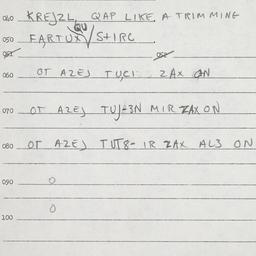 040 KREJZL QAP LIKE A TRIMMING
QU
050 FARTUX / S+IRC
051 052
060 OT AZEJ TUCI ZAX ON
070 OT AZEJ TUJ-3N MIR ZAX ON
080 OT AZEJ TUT8- IR ZAX AL3 ON
090 0
0
100